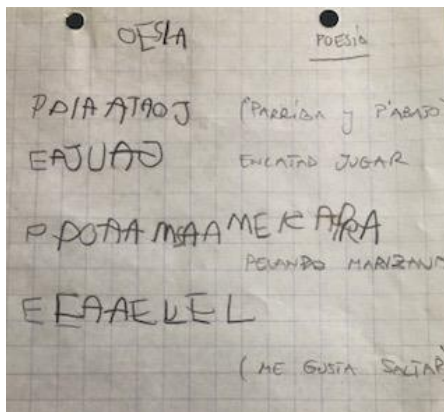 OESIA POESÍA
PDIA ATAOJ (P'ARRIBA y P'ABAJO
EAJUAO ENCATAD JUGAR
P POTAA MSAA MEKAPRA
PELANDO MARIZANM
E EAAEL EL
(ME GUSTA SALTAR